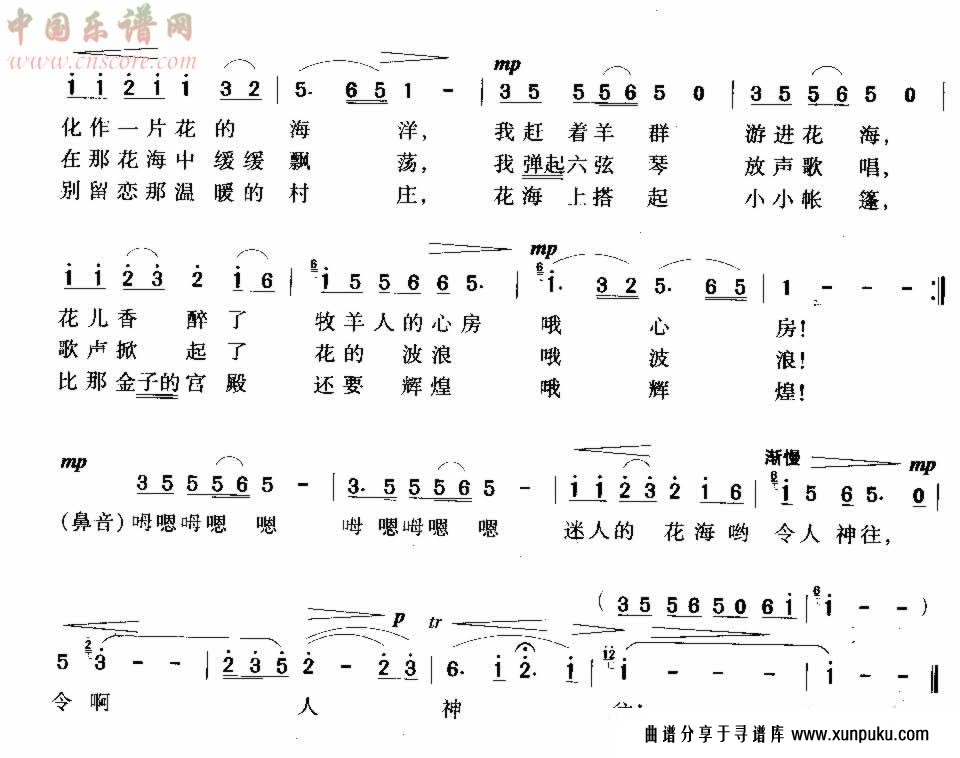 中国乐谱网
www.cnscore.com
mp
i i 2 i i 3 2 | 5. 6 5 1 - | 3 5 5 5 6 5 0 | 3 5 5 6 5 0 |
化作一片花的 海 洋, 我赶 着羊群 游进花 海,
在那花海中缓缓飘 荡, 我弹起六弦琴 放声歌 唱,
别留恋那温暖的村 庄, 花海 上搭起 小小帐 篷,
mp
i i 2 3 2 i 6 | 6 i 5 5 6 6 5 5. | 6 i. 3 2 5. 6 5 | 1 - - :‖
花儿香 醉了 牧羊人的心房 哦 心 房!
歌声掀 起了 花的 波浪 哦 波 浪!
比那金子的宫殿 还要 辉煌 哦 辉 煌!
渐慢
mp mp
3 5 5 5 6 5 - | 3. 5 5 5 6 5 - | i i 2 3 2 i 6 | 6 i 5 6 5. 0 |
(鼻音)呣嗯呣嗯 嗯 呣 嗯呣嗯 嗯 迷人的 花海哟 令人 神往,
( 3 5 5 6 5 0 6 i | 6 i - - )
p tr
5 2 3 - - | 2 3 5 2 - 2 3 | 6. i 2. i | i2 i - - - | i - - ‖
令 啊 人 神
曲谱分享于寻谱库 www.xunpuku.com